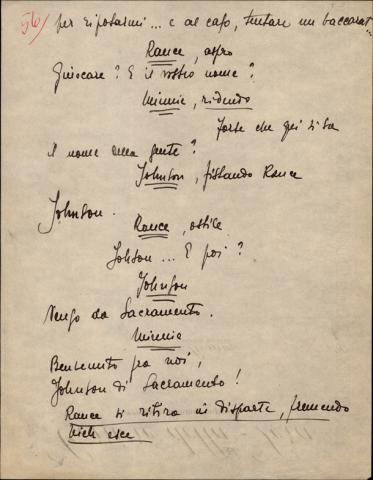 56/ per riposarmi... e al caso, tentare un baccarat...
Rance, aspro
Giuocare? E il vostro nome?
Minnie, ridendo
Forse che qui si sa
il nome della gente?
Johnson, fissando Rance
Johnson.
Rance, ostile
Johson... E poi?
Johnson
Vengo da Sacramento.
Minnie
Benvenuto fra noi,
Johnson di Sacramento!
Rance si ritira in disparte, fremendo
Nick esce